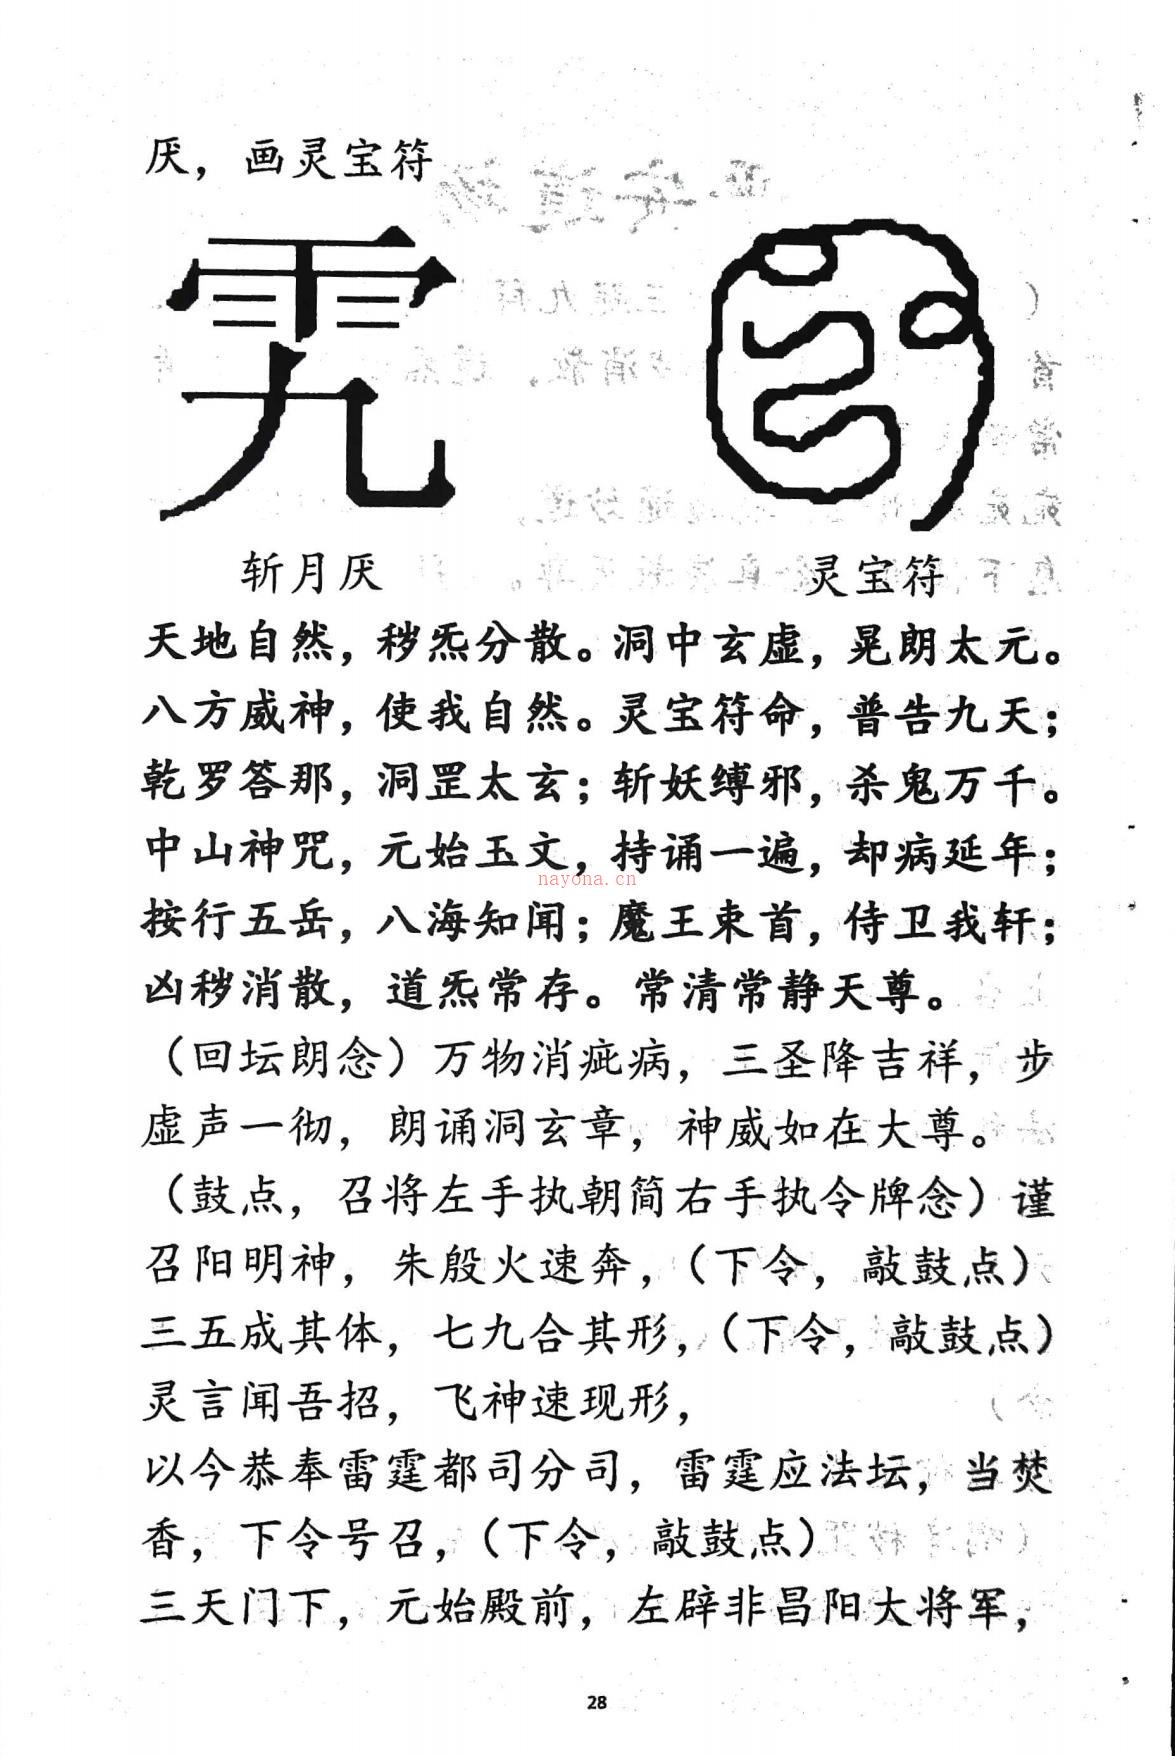 厌，画灵宝符
斩月厌
灵宝符
天地自然，秽炁分散。洞中玄虚，晃朗太元。
八方威神，使我自然。灵宝符命，普告九天；
乾罗答那，洞罡太玄；斩妖缚邪，杀鬼万千。
中山神咒，元始玉文，持诵一遍，却病延年；
nayona.cn
按行五岳，八海知闻；魔王束首，侍卫我轩；
凶秽消散，道炁常存。常清常静天尊。
（回坛朗念）万物消疵病，三圣降吉祥，步
虚声一彻，朗诵洞玄章，神威如在大尊。
（鼓点，召将左手执朝简右手执令牌念）谨
召阳明神，朱殷火速奔，（下令，敲鼓点）
三五成其体，七九合其形，（下令，敲鼓点）
灵言闻吾招，飞神速现形，
以今恭奉雷霆都司分司，雷霆应法坛，当焚
香，下令号召，（下令，敲鼓点）
三天门下，元始殿前，左辟非昌阳大将军，
28